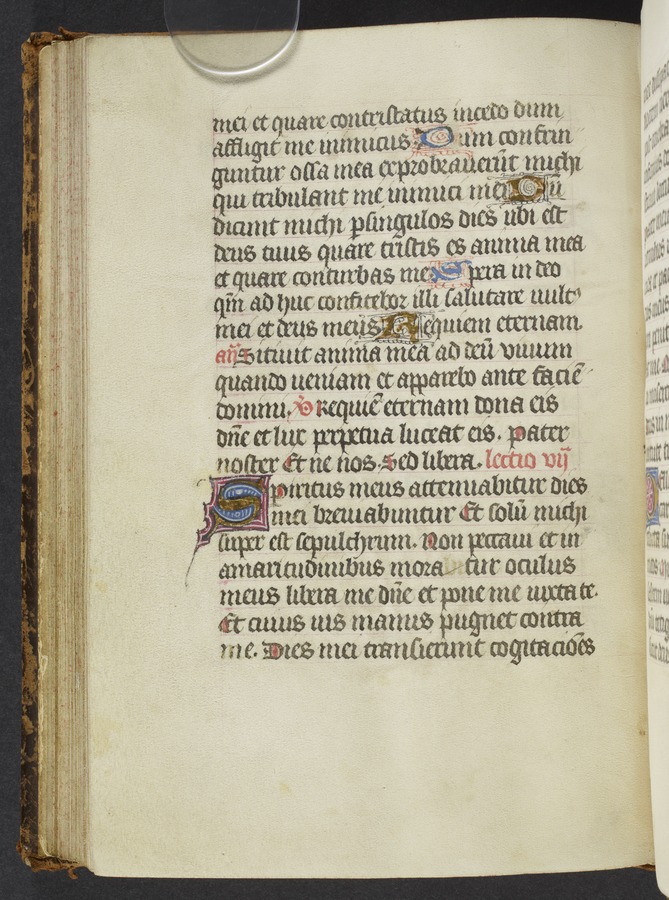 mei et quare contristatus incedo dum
affligit me inimicus Dum confrin
guntur ossa mea exprobrauerūt michi
qui tribulant me inimici mei Dū
dicunt michi p singulos dies ubi est
deus tuus quare tristis es anima mea
et quare conturbas me Spera in deo
qm̄ ad huc confitebor illi salutare uult9
mei et deus meus Requiem eternam.
an̄ Sitiuit anima mea ad deū viuum
quando ueniam et apparebo ante faciē
domini. V Requiē eternam dona eis
dn̄e et lux perpetua luceat eis. Pater
noster Et ne nos. Sed libera. lectio vij
Spiritus meus attenuabitur dies
mei breuiabuntur Et solū michi
super est sepulchrum. Non peccaui et in
amaritudinibus mora tur oculus
meus libera me dn̄e et pone me iuxta te.
Et cuius uis manus pugnet contra
me. Dies mei transierunt cogitaciōēs